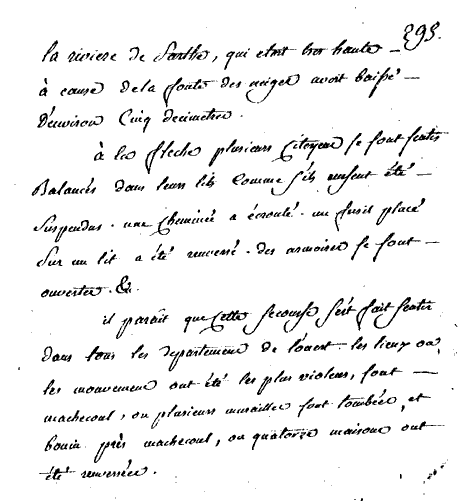 295.
la riviere de Sarthe, qui etait tres haute
à cause de la fonte des neiges avoit baissé
D'environ Cinq decimetres.
à la fleche plusieurs Citoyens se sont sentis
Balancés dans leurs lits Comme s'ils eussent été
suspendus. une Cheminée a écroulé. un fusil placé
sur un lit a été renversé. des armoires se sont
ouvertes. &.
il paraît que Cette secousse s'est fait sentir
dans tous les departemens de l'ouest. les lieux ou
les mouvemens ont été les plus violens, sont
machecoul, ou plusieurs murailles sont tombées, et
bouin près machecoul, ou quatorze maisons ont
été renversées.